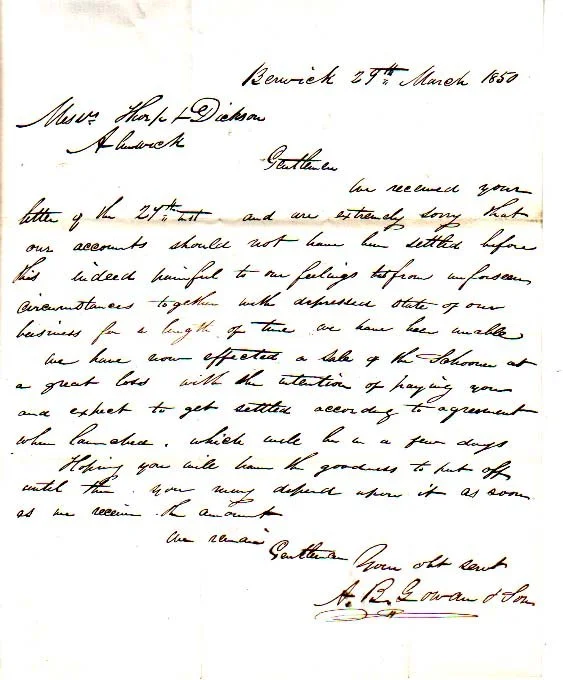 Berwick 29th March 1850
Messrs Thorp & Dickson
Alnwick
Gentlemen
We received your
letter of the 27th inst. and are extremely sorry that
our accounts should not have been settled before
this indeed painful to our feelings but from unforseen
circumstances together with depressed state of our
business for a length of time we have been unable
we have now effected a sale of the Schooner at
a great loss with the intention of paying you
and expect to get settled according to agreement
when launched. which will be in a few days
Hoping you will have the goodness to put off
until then. you may depend upon it as soon
as we receive the amount
We remain
Gentlemen Your obt servt
A. B. Gowan & Son